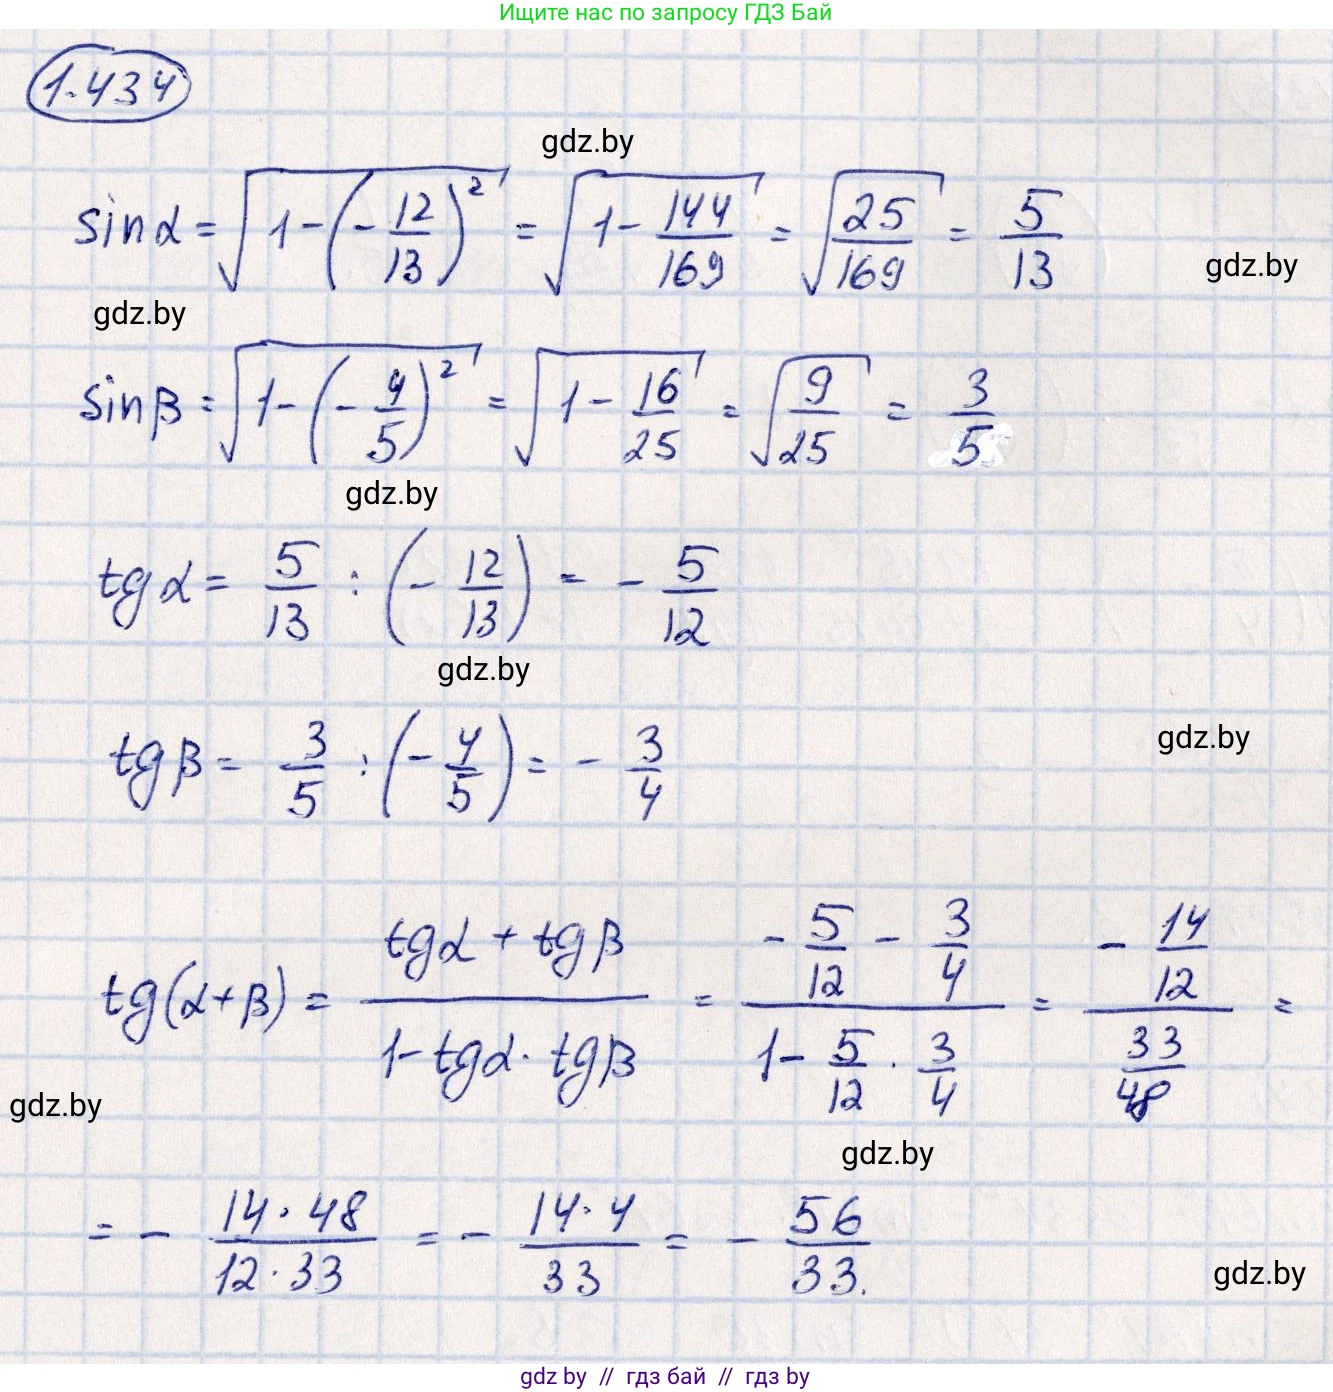 Ищите нас по запросу ГДЗ Бай
1.434
gdz.by
sinα = √(1-(-12/13)²) = √(1-144/169) = √(25/169) = 5/13
gdz.by
gdz.by
sinβ = √(1-(-4/5)²) = √(1-16/25) = √(9/25) = 3/5
gdz.by
tgα = 5/13 : (-12/13) = -5/12
gdz.by
tgβ = 3/5 : (-4/5) = -3/4
gdz.by
tg(α+β) = (tgα + tgβ)/(1-tgα·tgβ) = (-5/12 - 3/4)/(1-5/12·3/4) = (-14/12)/(33/48) =
gdz.by
gdz.by
= - (14·48)/(12·33) = - (14·4)/33 = - 56/33.
gdz.by
gdz by // гдз бай // гдз by